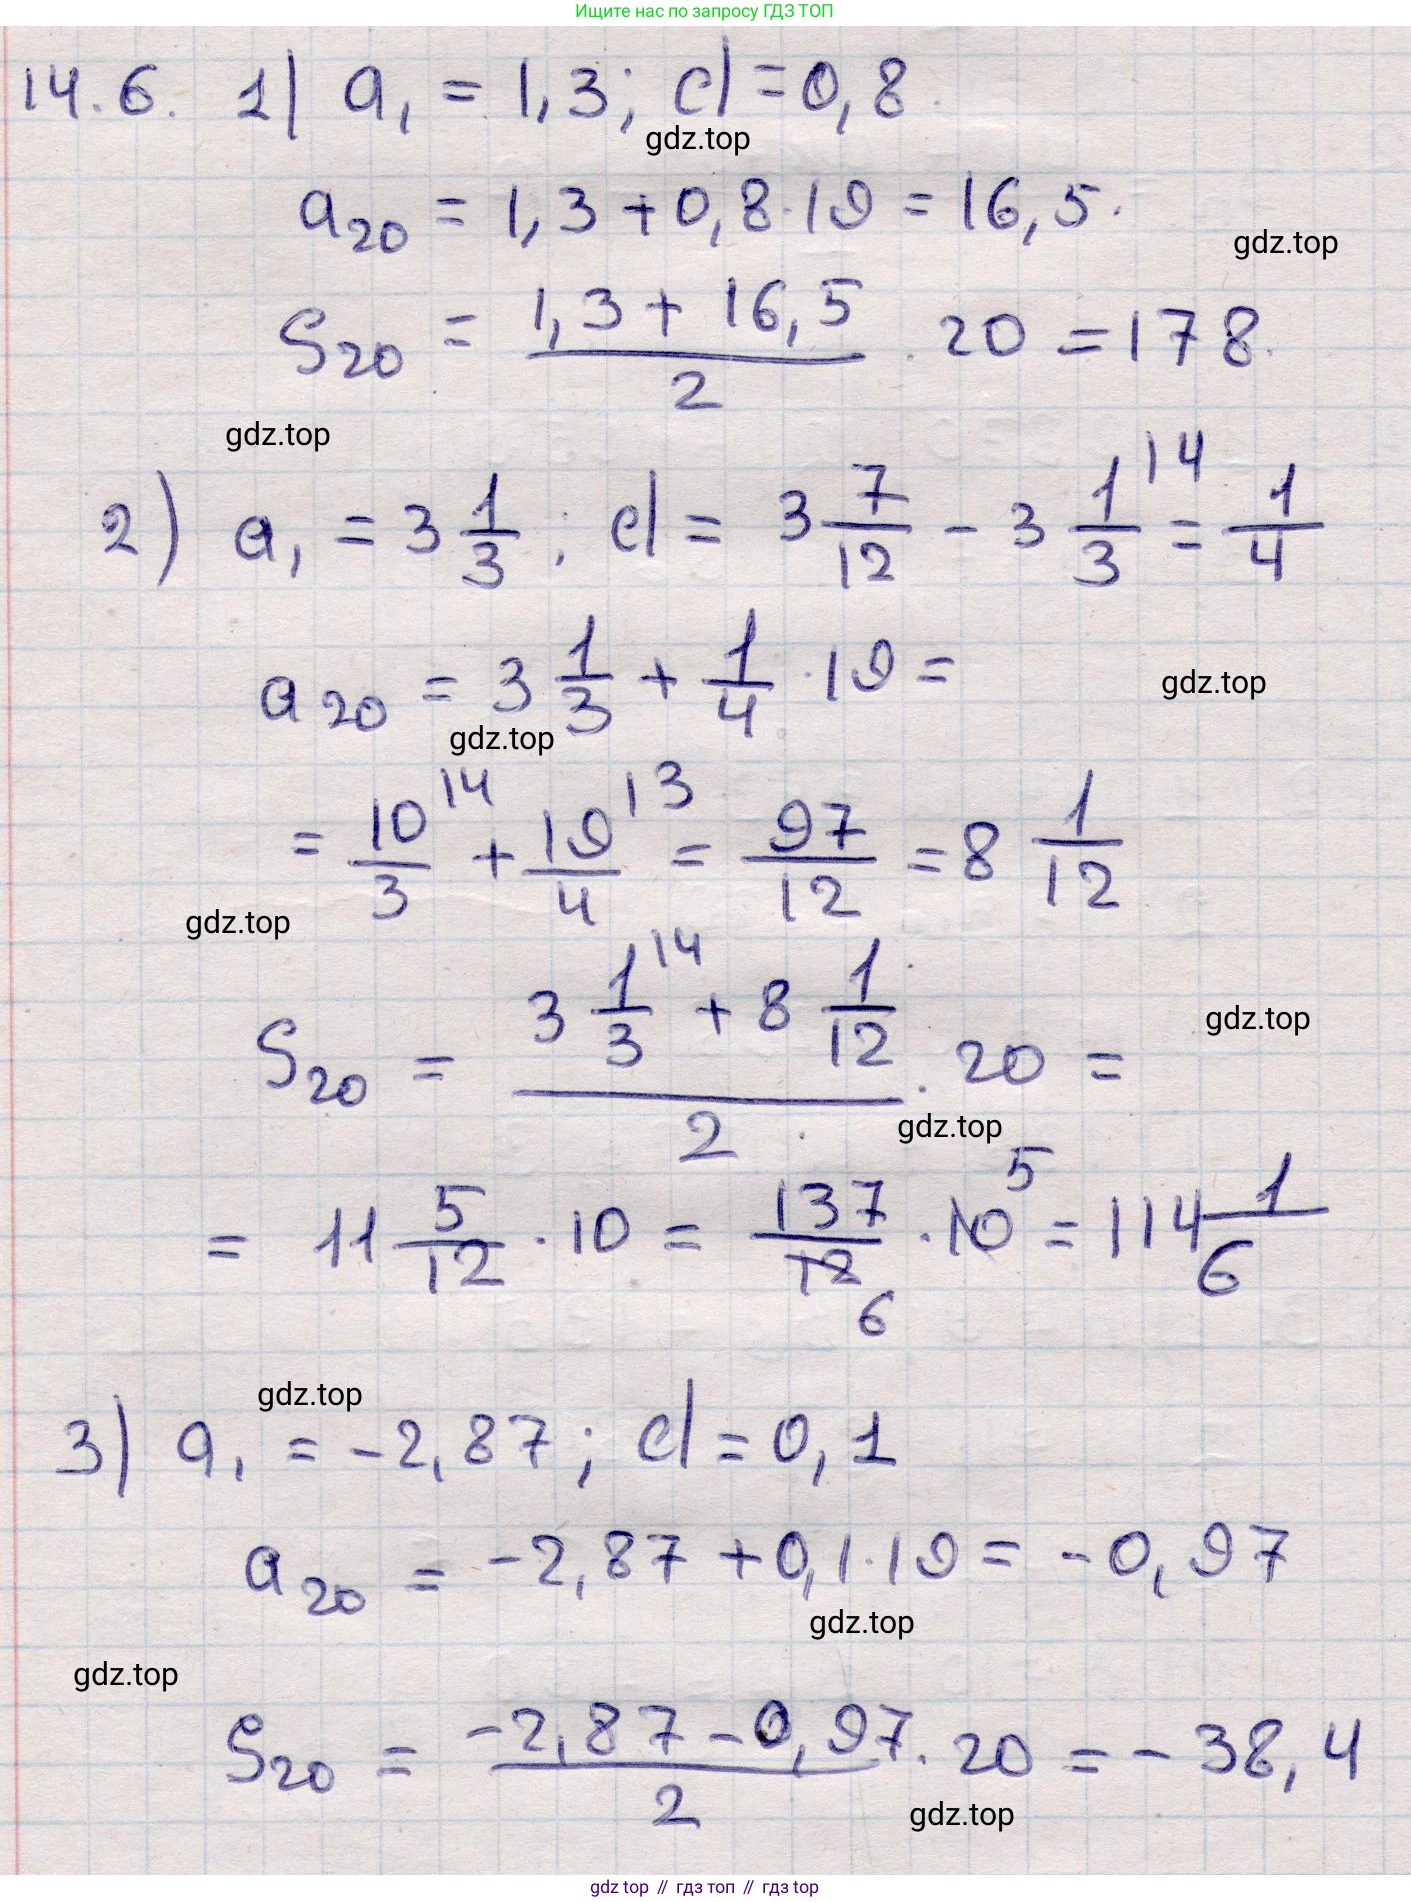 Ищите нас по запросу ГДЗ ТОП
14.6. 1) a₁ = 1,3; d = 0,8.
gdz.top
a₂₀ = 1,3 + 0,8 · 19 = 16,5.
gdz.top
S₂₀ = (1,3 + 16,5)/2 · 20 = 178.
gdz.top
2) a₁ = 3 1/3; d = 3 7/12 - 3 1/3 ^14 = 1/4
a₂₀ = 3 1/3 + 1/4 · 19 =
gdz.top
gdz.top
= 10/3 ^14 + 19/4 ^13 = 97/12 = 8 1/12
gdz.top
S₂₀ = (3 1/3 ^14 + 8 1/12)/2 · 20 =
gdz.top
gdz.top
= 11 5/12 · 10 = 137/12 6 · 10 5 = 114 1/6
gdz.top
3) a₁ = -2,87; d = 0,1
a₂₀ = -2,87 + 0,1 · 19 = -0,97
gdz.top
gdz.top
S₂₀ = (-2,87 - 0,97)/2 · 20 = -38,4
gdz.top
gdz top // гдз топ // гдз top